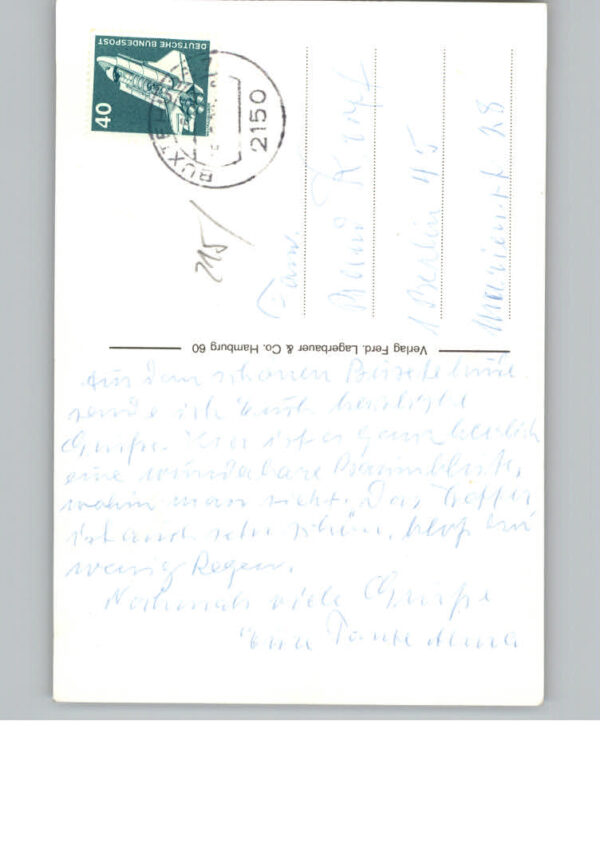 DEUTSCHE BUNDESPOST
40
BUXTEHUDE
2150
215/
Fam.
1 Berlin 45
Verlag Ferd. Lagerbauer & Co. Hamburg 60
Aus dem schönen Buxtehude
sende ich Euch herzliche
Grüße. Hier ist es ganz herrlich
eine wunderbare Baumblüte,
wohin man sieht. Das Wetter
ist auch sehr schön, bloß ein
wenig Regen.
Nochmals viele Grüße
Eure Tante